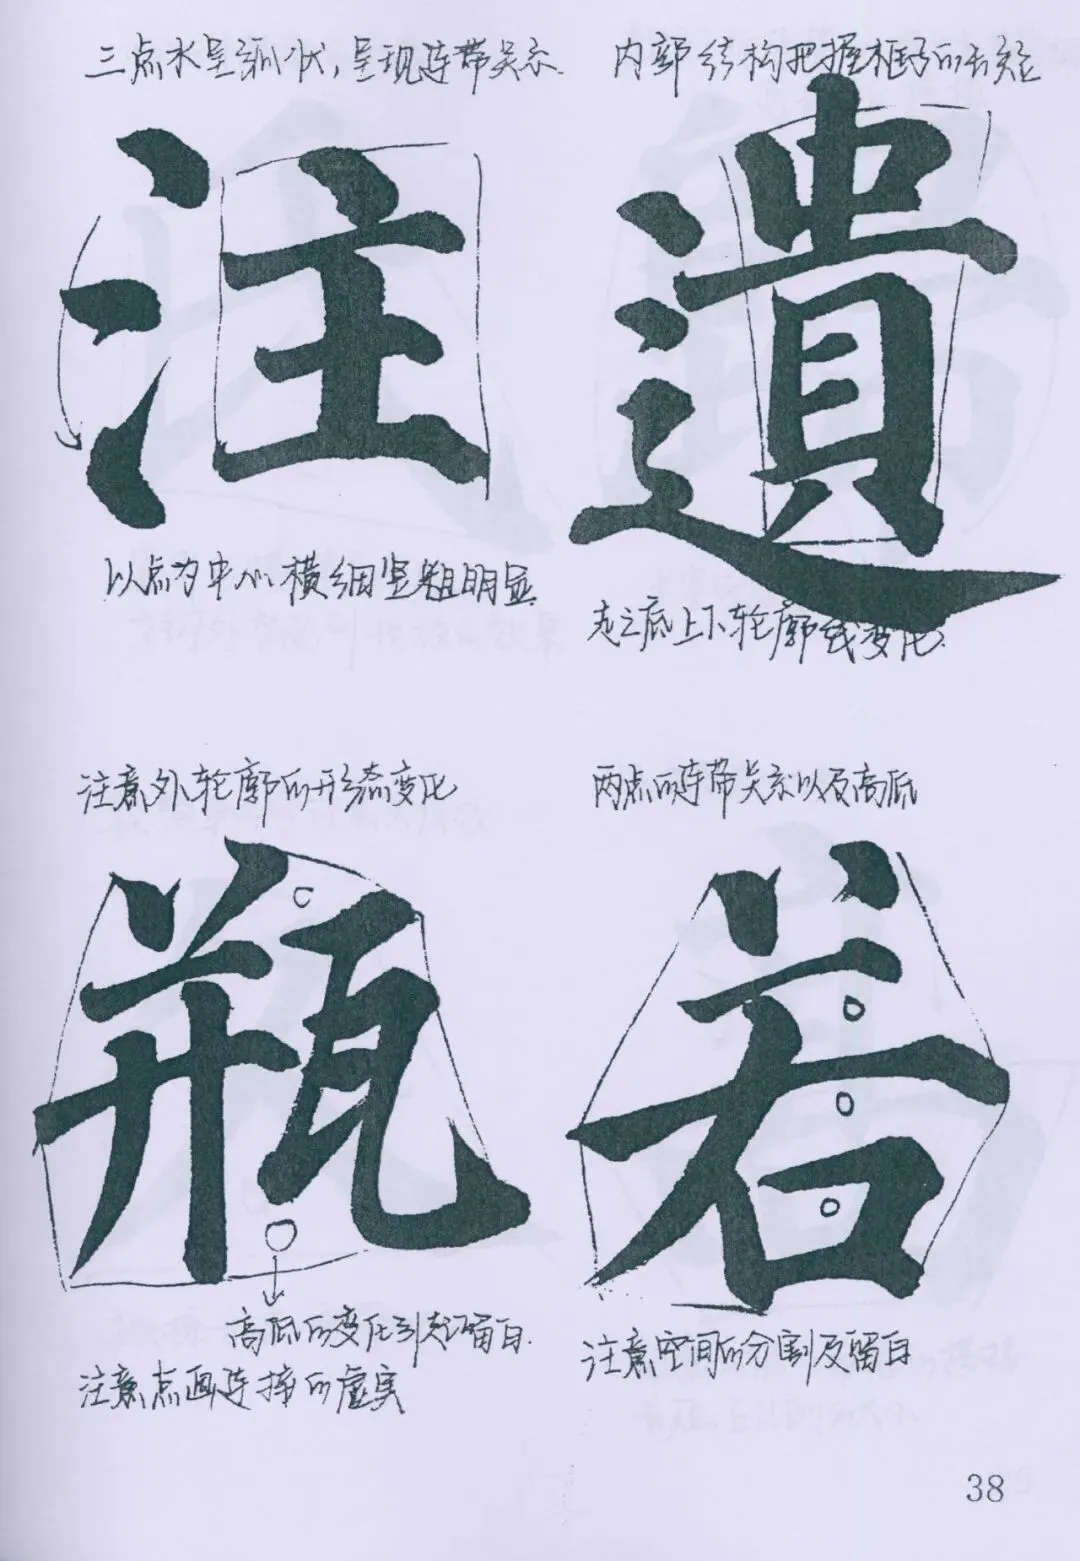 三点水呈弧状，呈现连带关系.
内部结构把握框子的长短
注
遺
以点为中心、横细竖粗明显
走之底上下轮廓线变化.
注意外轮廓的形态变化
两点的连带关系以及高低
瓶
若
高低的变化引起留白.
注意点画连接的虚实
注意空间的分割及留白
38